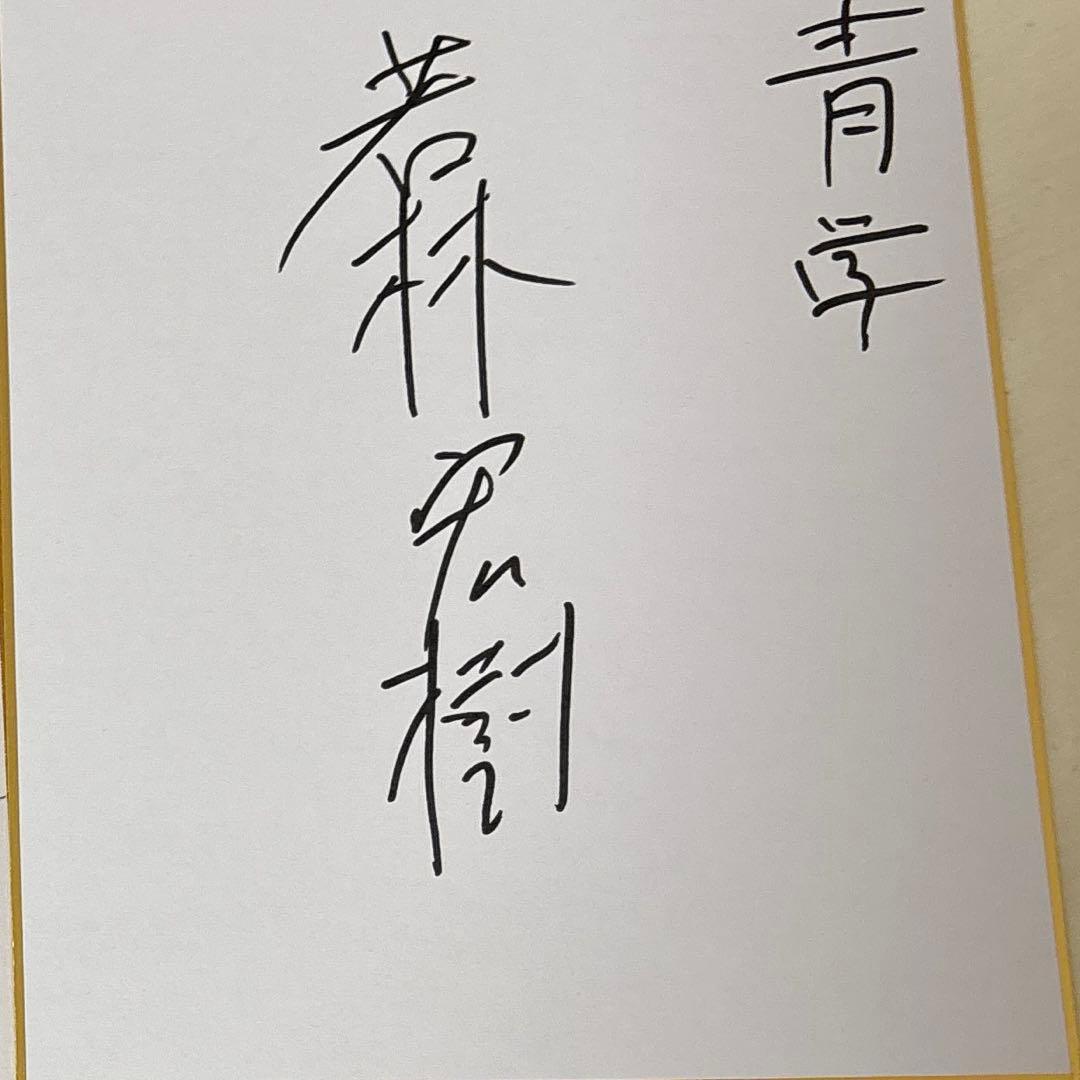 青学
若林宏樹